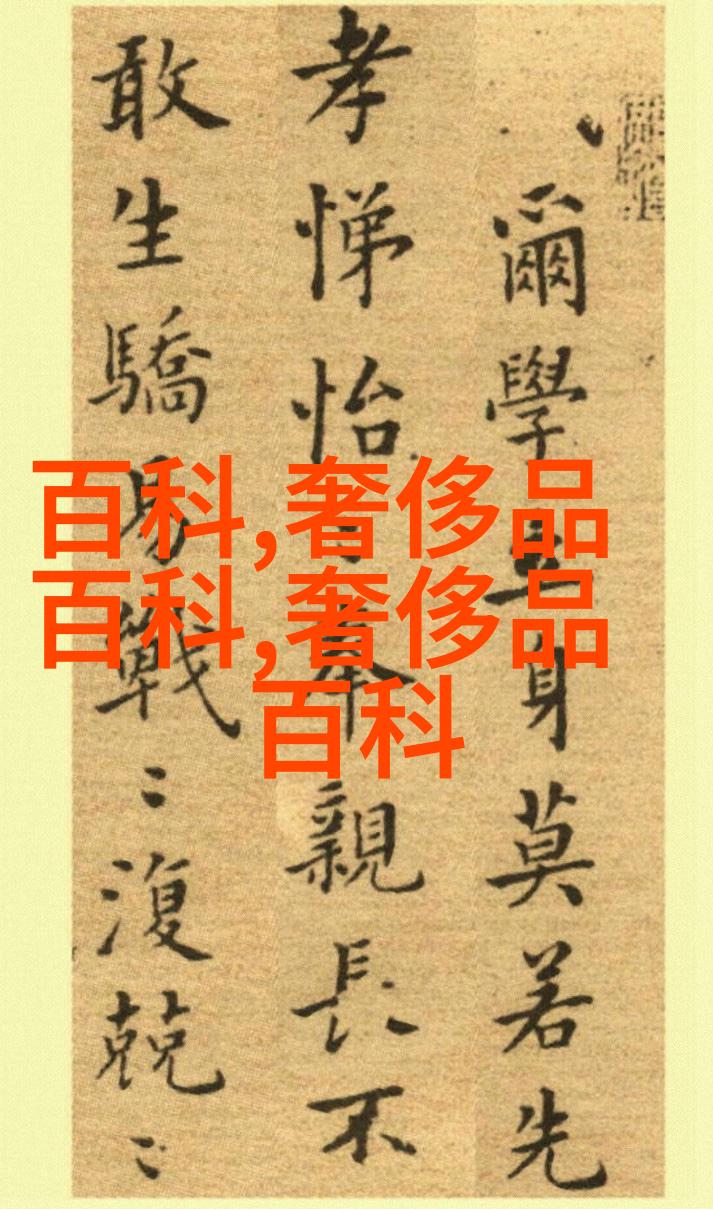 百科,奢侈品
百科,奢侈品
百科
爾學立身莫若先
孝悌怡〻奉親長不
敢生驕易戰〻復兢〻